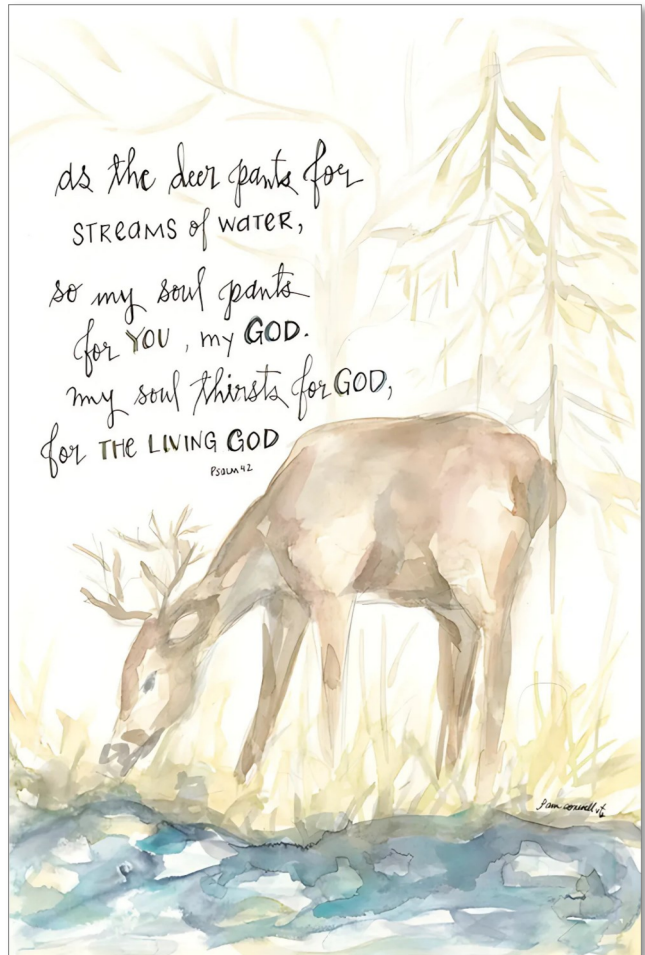 as the deer pants for
STReAMS of WATER,
so my soul pants
for YOU, my GOD.
my soul thirsts for GOD,
for THE LIVING GOD
Psalm 42